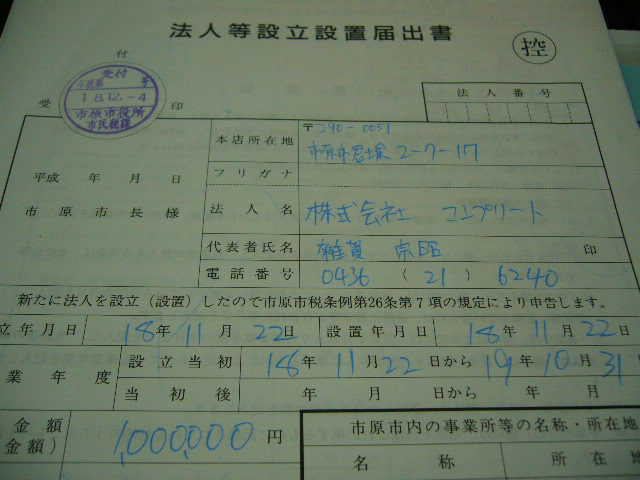 法人等設立設置届出書
控
受付
号
18.12.-4
市原市役所
市民税課
受 付 印
法人番号
本店所在地 〒290-0051
2-7-17
フリガナ
平成 年 月 日
市原市長様
法人名 株式会社 コンプリート
代表者氏名 雑賀 印
電話番号 0436 (21) 6240
新たに法人を設立(設置)したので市原市税条例第26条第7項の規定により申告します。
立年月日 18年11月22日 設置年月日 18年11月22日
業年度 設立当初 18年11月22日から19年10月31
当初後 年 月 日から 年 月
金額
金額) 1,000,000円
市原市内の事業所等の名称・所在地
名称 所在地